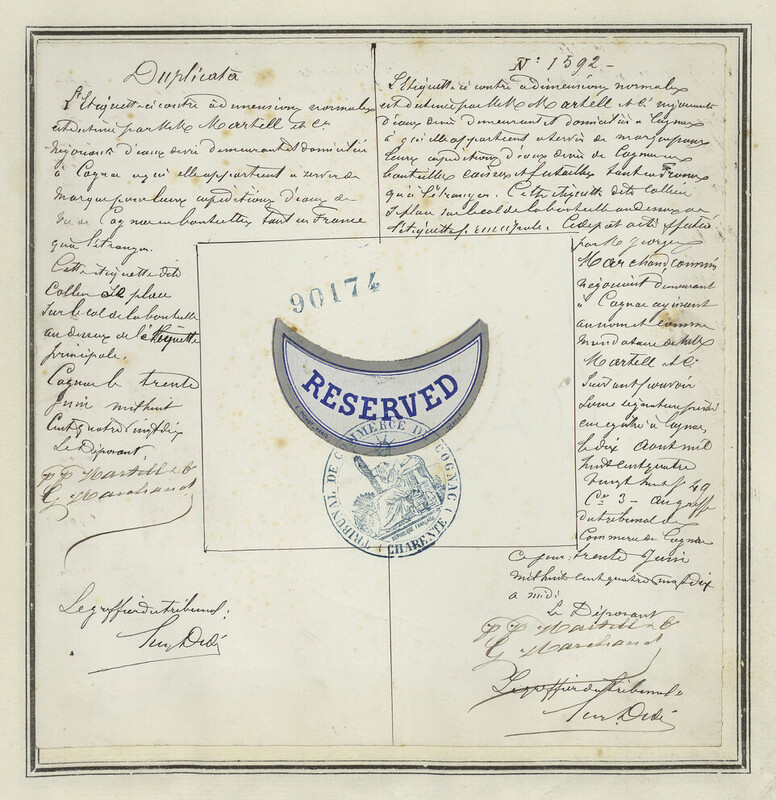 Duplicata
L'Etiquette ci contre a dimensions normales
est destinée par M.M. Martell et Cie
négociants d'eaux de vie demeurant et domiciliés
à Cognac à qui elle appartient à servir de
marque pour leurs expéditions d'eaux de
vie de Cognac en bouteilles tant en France
qu'à l'étranger.
Cette étiquette dite
Collier se place
sur le col de la bouteille
au dessus de l'étiquette
principale.
Cognac le trente
Juin mil huit
Cent quatre vingt dix
Le Déposant,
pp Martell & Co
G Marchand
Le greffier du tribunal.
N° 1592 -
L'Etiquette ci contre a dimensions normales
est destinée par M.M. Martell et Cie négociants
d'eaux de vie demeurant et domiciliés à Cognac
à qui elle appartient à servir de marque pour
leurs expéditions d'eaux de vie de Cognac en
bouteilles caisses et futailles tant en France
qu'à l'étranger. Cette étiquette dite Collier
se place sur le col de la bouteille au dessus de
l'étiquette principale. Ce dépôt a été effectué
par M. Georges
Marchand, commis
négociant demeurant
à Cognac agissant
au nom et comme
mandataire de M.M.
Martell et Cie
suivant pouvoir
sous signature privée
enregistré à Cognac,
le dix Août mil
huit cent quatre
vingt huit f° 49
Ce 3 - au greffe
du tribunal de
Commerce de Cognac
ce jour: trente Juin
mil huit cent quatre vingt dix
à midi.
Le Déposant
pp Martell & Co
G Marchand
Le greffier du tribunal
90174
RESERVED
TRIBUNAL DE COMMERCE DE COGNAC
RÉPUBLIQUE FRANÇAISE
(CHARENTE)